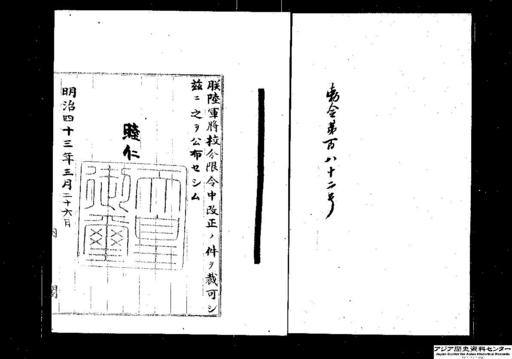 勅令第百八十二号
朕陸軍将校分限令中改正ノ件ヲ裁可シ
茲ニ之ヲ公布セシム
睦仁
天皇御璽
明治四十三年三月二十六日
内閣
アジア歴史資料センター
Japan Center for Asian Historical Records